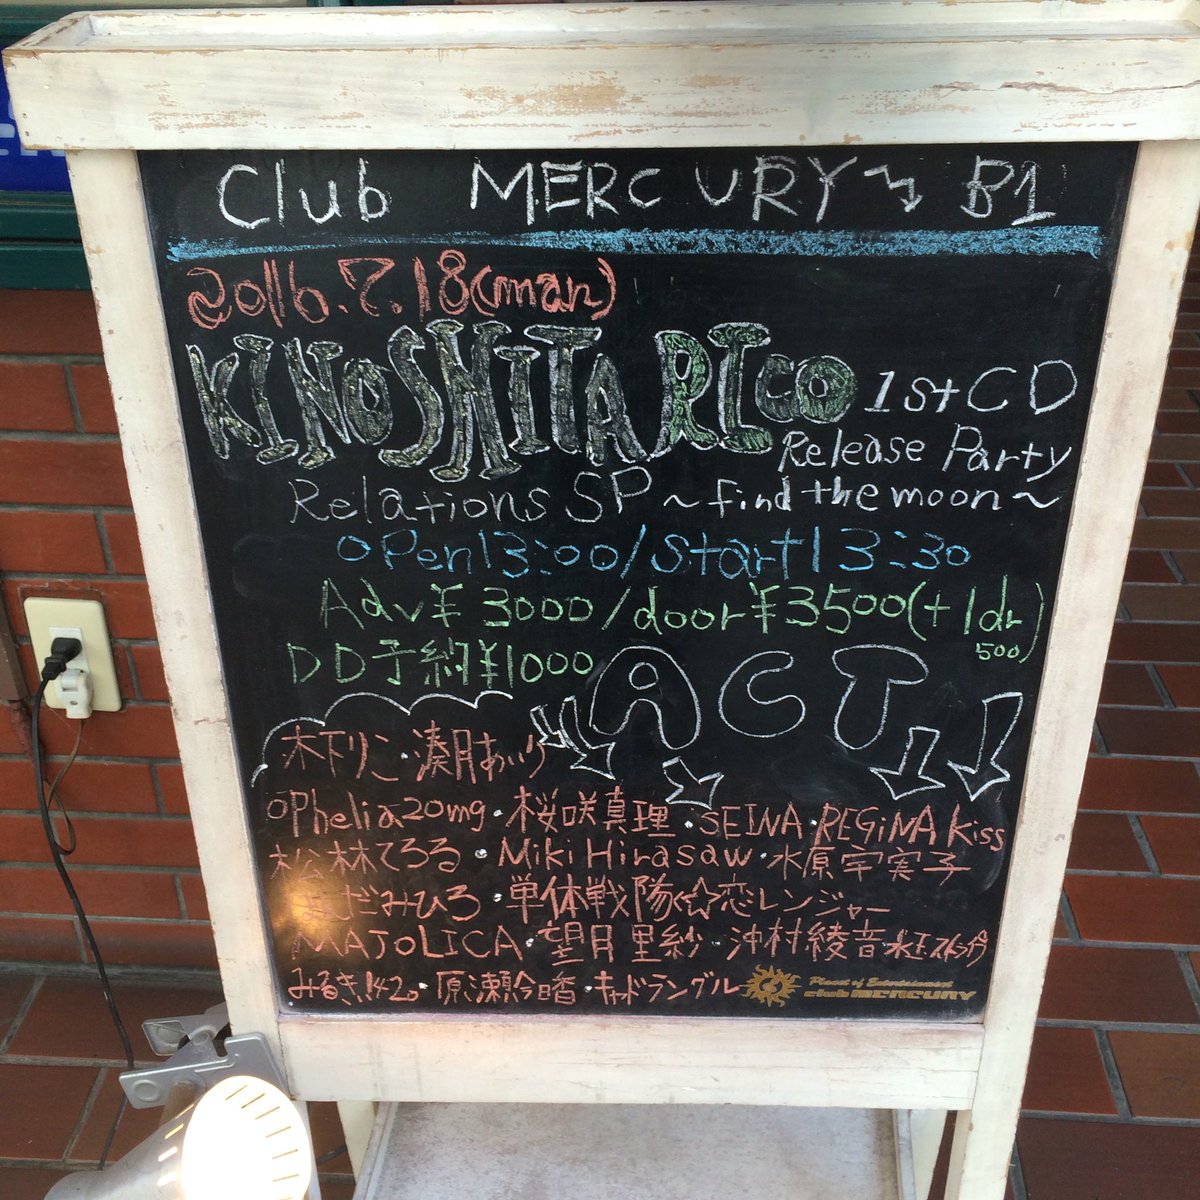 Club MERCURY B1
2016.7.18(man)
KINOSHITA RICO 1st CD
Release Party
Relations SP ~find the moon~
open13:00/start13:30
Adv¥3000/door¥3500(+1dr
500)
DD予約¥1000
ACT
木下りこ・湊月あいり
oPhelia20mg・桜咲真理・SEINA・REGiNA Kiss
松林てろる・Miki Hirasaw・水原宇実子
まだみひろ・単体戦隊☆恋レンジャー
MAJOLICA・望月里紗・沖村綾音
みるき1420・原瀬怜香・キャドラングル
Planet of Entertainment
club MERCURY